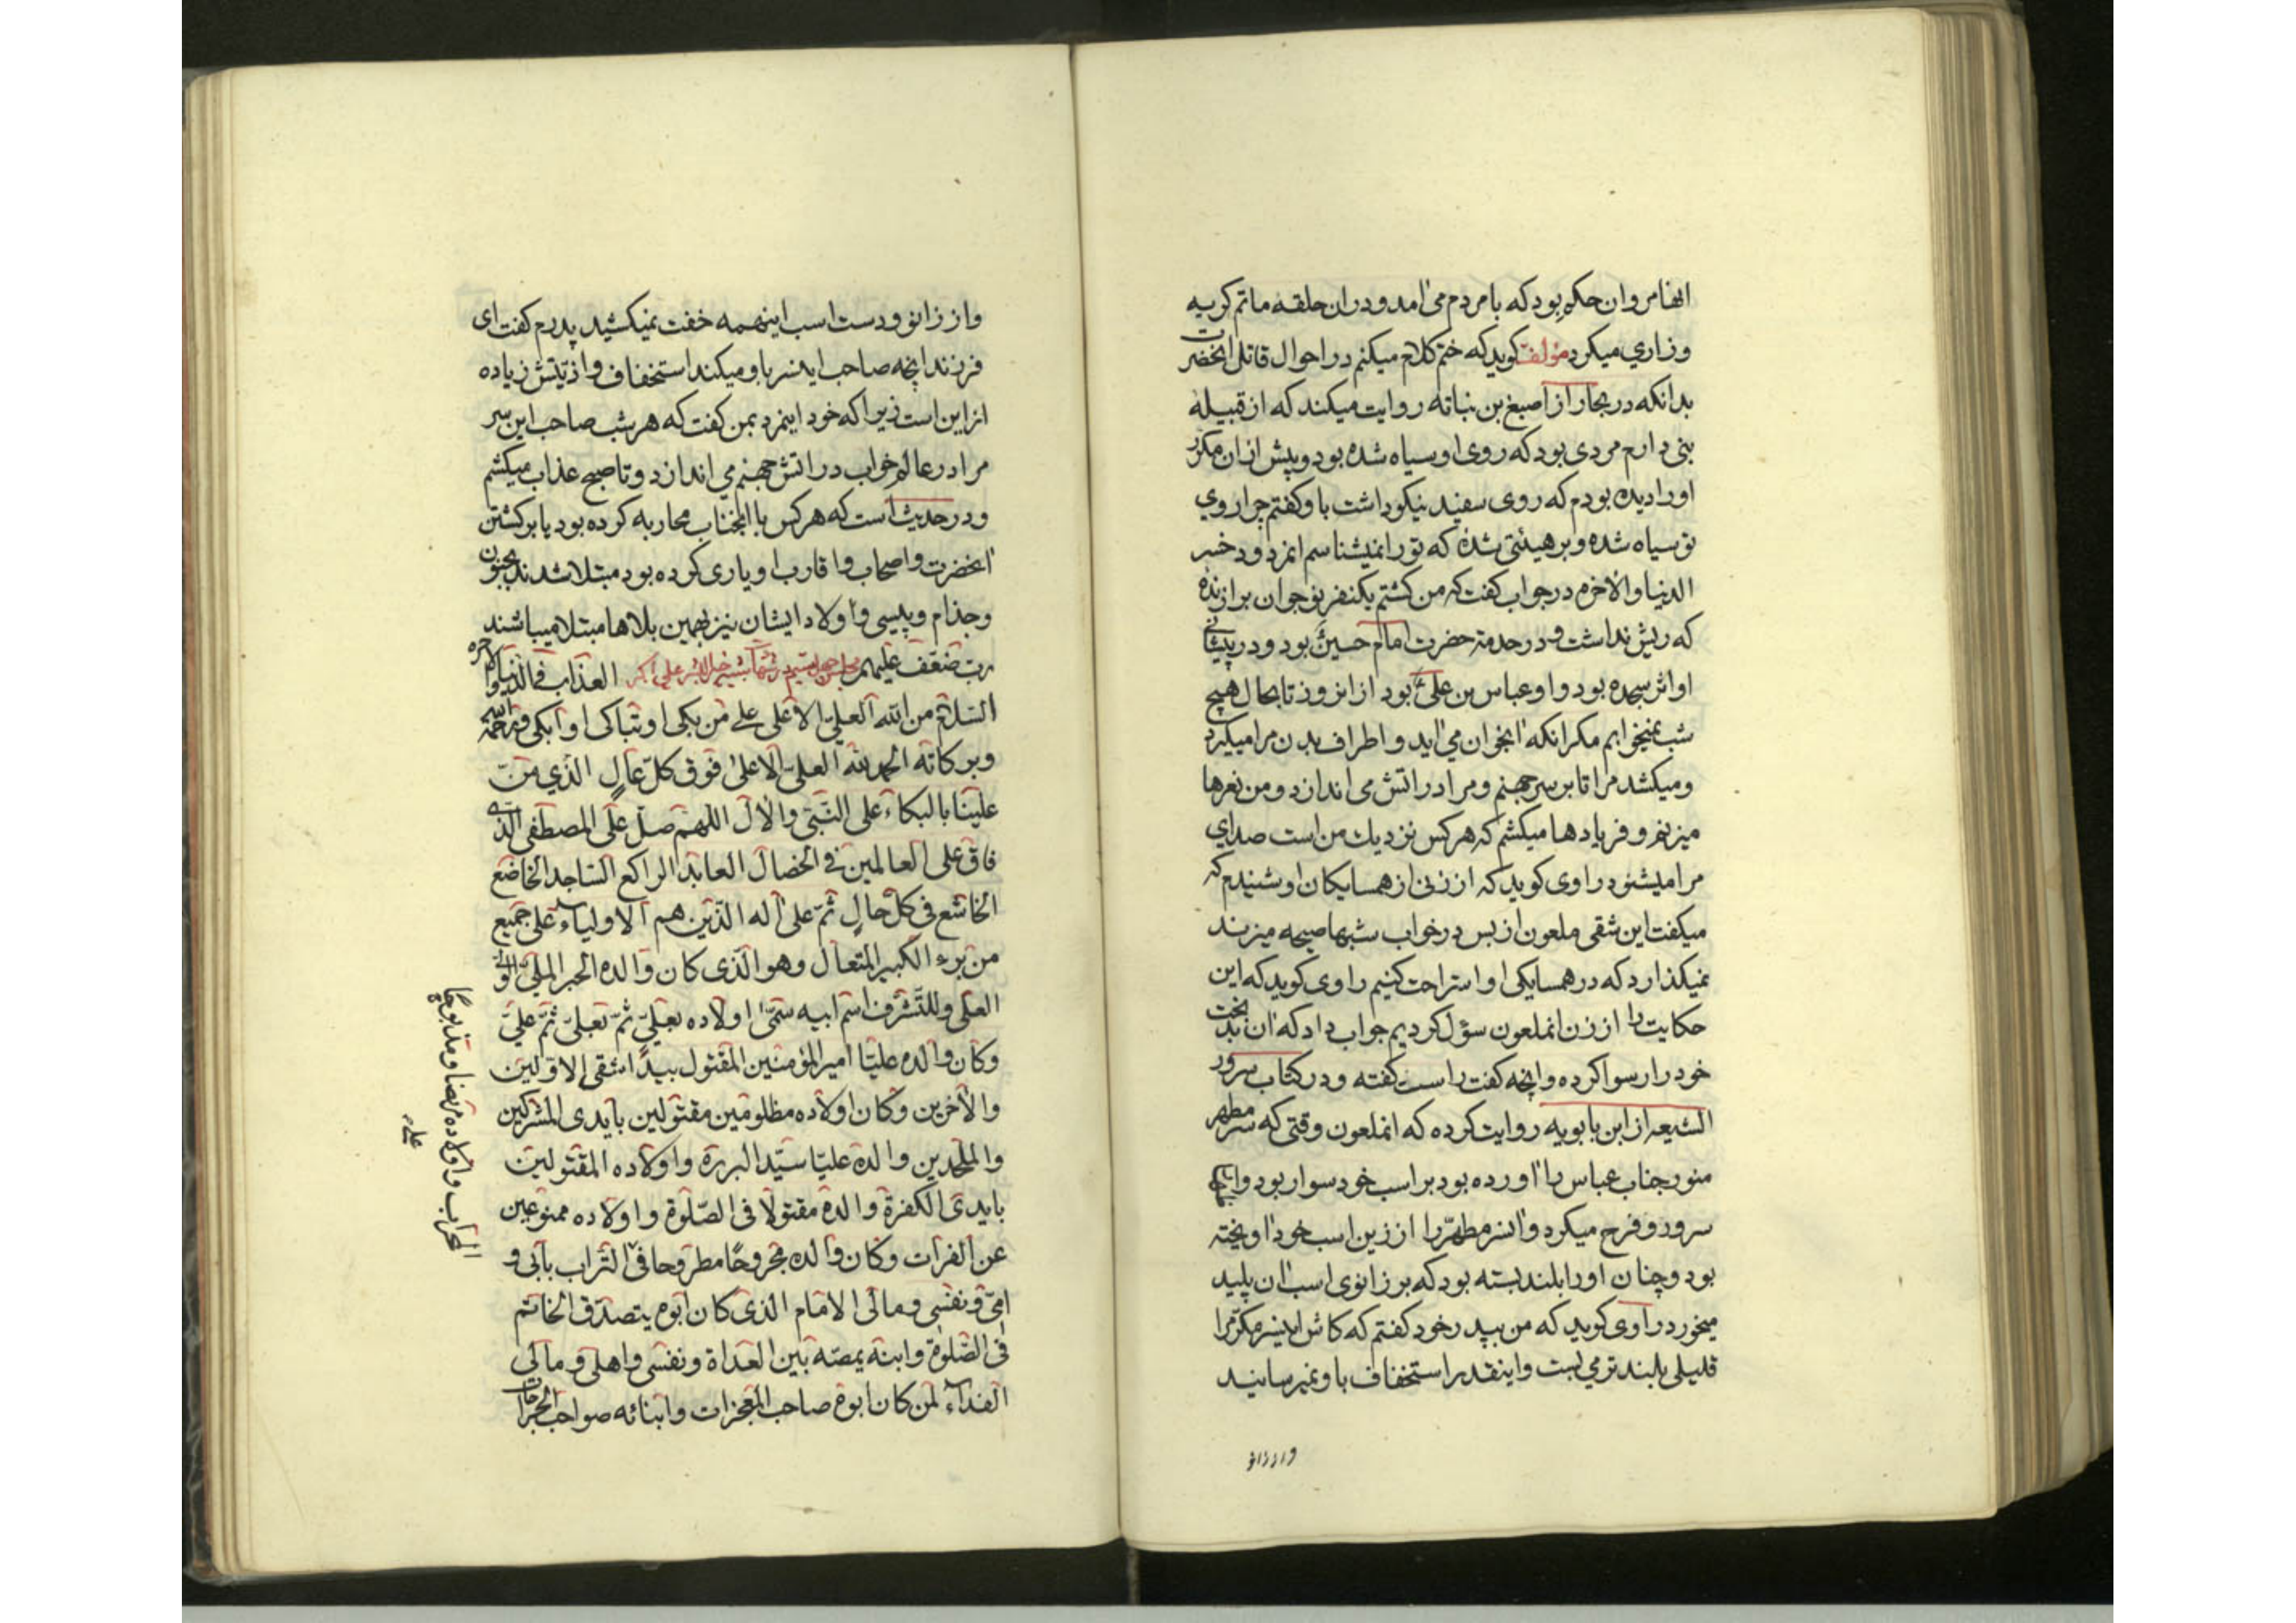 وان حکم بود که با مردم می‌آمد و در ان حلقه ماتم کریه
وزاری میکرد مؤلف کوید که ختم کلام میکنم در احوال قاتل انحضرت
بدانکه در بحار از اصبغ بن نباته روایت میکند که از قبیله
بنی دارم مردی بود که روی او سیاه شده بود و پیش از ان مکرر
او را دیده بودم که روی سفید نیکو داشت باو کفتم چرا روی
تو سیاه شده و بر هیئتی شدهٔ که تو را نمیشناسم انمردود خسر
الدنیا والاخره در جواب کفت که من کشتم یکنفر نوجوان برازندهٔ
که ریش نداشت و در خدمة حضرت امام حسین بود و در پیشانی
او اثر سجده بود و او عباس بن علی بود از انروز تا بحال هیچ
شب نمیخوابم مکر انکه انجوان می‌آید و اطراف بدن مرا میکیرد
و میکشد مرا تا بر سر جهنم و مرا در اتش می اندازد و من نعرها
میزنم و فریادها میکشم که هر کس نزدیك من است صدای
مرا میشنود راوی کوید که از زنی از همسایکان او شنیدم که
میکفت این شقی ملعون از بس در خواب شبها صیحه میزند
نمیکذارد که در همسایکی او استراحت کنیم راوی کوید که این
حکایت را از زن انملعون سؤل کردیم جواب داد که ان بدبخت
خود را رسوا کرده و انچه کفت راست کفته و در کتاب سرور
الشیعه از ابن بابویه روایت کرده که انملعون وقتی که سر مطهر
منور جناب عباس را اورده بود بر اسب خود سوار بود و
سرور و فرح میکرد و انسر مطهر را از زین اسب خود اویخته
بود و چنان او را بلند بسته بود که بر زانوی اسب ان پلید
میخورد راوی کوید که من بپدر خود کفتم که کاش اینسر مکرم را
قلیلی بلندتر می بست و اینقدر استخفاف باو نمیرسانید
و از زانو
و از زانو و دست اسب اینهمه خفت نمیکشید پدرم کفت ای
فرزند انچه صاحب اینسر باو میکند استخفاف و اذیتش زیاده
از این است زیرا که خود اینمرد بمن کفت که هر شب صاحب این سر
مرا در عالم خواب در اتش جهنم می اندازد و تا صبح عذاب میکشم
و در حدیث است که هر کس با انجناب محاربه کرده بود یا بر کشتن
انحضرت و اصحاب و اقارب او یاری کرده بود مبتلا شدند بجنون
و جذام و پیسی و اولاد ایشان نیز بهمین بلاها مبتلا میباشند
رب ضعف علیهم العذاب فی الدنیا والاخره
السلام من الله العلی الاعلی علی من بکی او تباکی او ابکی ورحمة الله
وبرکاته الحمد لله العلی الاعلی فوق کل عال الذی من
علینا بالبکاء علی النبی والال اللهم صل علی المصطفی الذی
فاق علی العالمین فی الخصال العابد الراکع الساجد الخاضع
الخاشع فی کل حال ثم علی اله الذین هم الاولیاء علی جمیع
من برء الکبیر المتعال وهو الذی کان والده الحبر الملی
العلی وللتشرف اسم ابیه سمی اولاده بعلی ثم بعلی ثم علی
وکان والده علیا امیر المؤمنین المقتول بید اشقی الاولین
والآخرین وکان اولاده مظلومین مقتولین بایدی المشرکین
والملحدین والده علیا سید البررة واولاده المقتولین
بایدی الکفرة والده مقتولا فی الصلوة واولاده ممنوعین
عن الفرات وکان والده مجروحا مطروحا فی التراب بابی و
امی ونفسی ومالی الامام الذی کان ابوه یتصدق الخاتم
فی الصلوة وابنه یمصه بین العداة ونفسی واهلی ومالی
الفداء لمن کان ابوه صاحب المعجزات وابنائه صواحب
المحراب واولاده